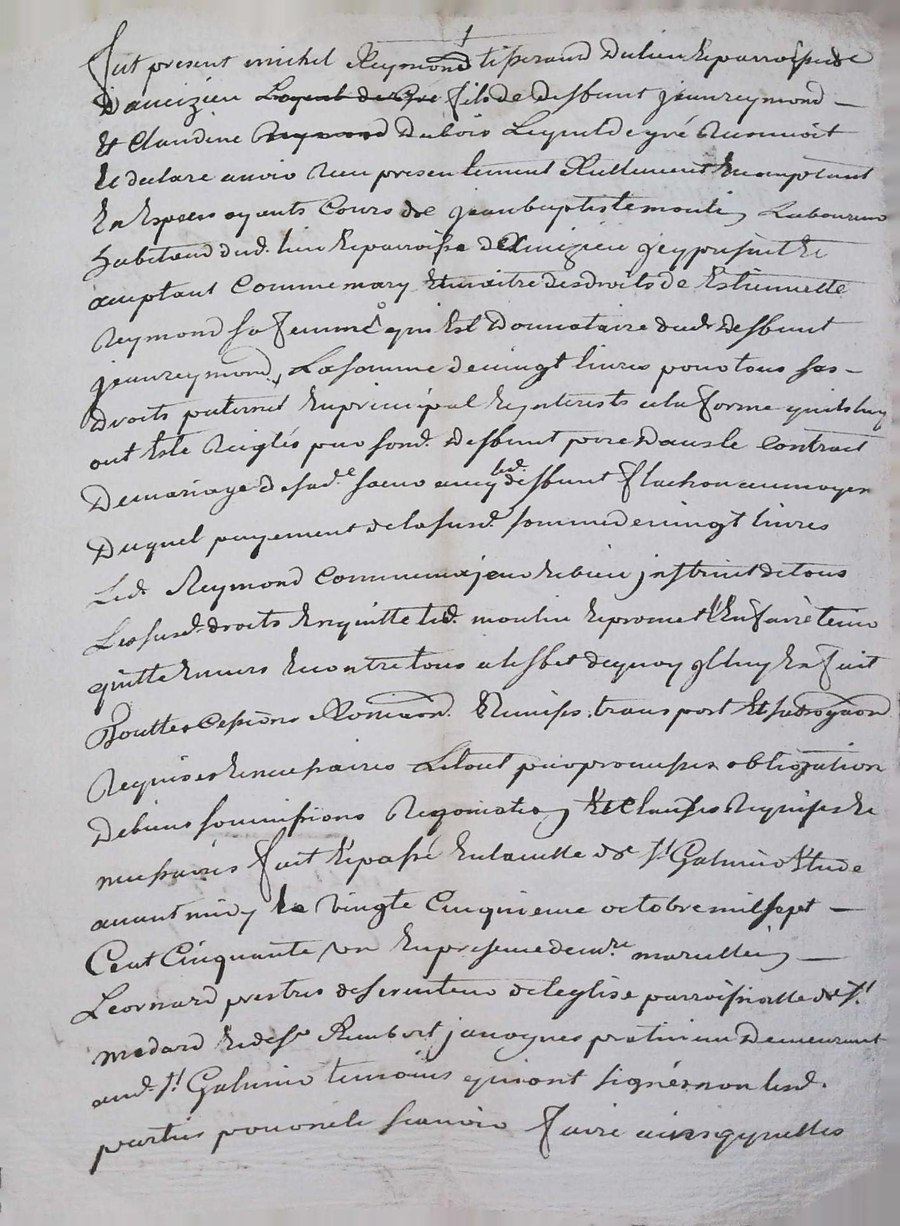 fut present michel Reymond tisserand du lieu et parroisse de
Daveizieu fils de deffunt jean reymond
et Claudine Dubois Lequel de gré Reconnoit
et declare avoir Receu presentement Reellement et comptant
En Especes ayants Cours de jean baptiste moulin Laboureur
habitand dud. lieu et parroisse de Aveizieu jcy present et
acceptant Comme mary et maitre des droits de Estiennette
Reymond sa femme qui Est Donnataire dudt deffunt
jean reymond, La somme de vingt livres pour tous ses
droits paternel En principal et jnterests a la forme quils luy
ont Esté Reiglés par sond. deffunt pere Dans le contract
De mariage de sade soeur avec led. deffunt flachon au moyen
Duquel payement de la susd. somme de vingt livres
Led. Reymond comme majeur et bien jnstruit de tous
Les susd. droits En quitte led. moulin et promet l'En faire tenir
quitte Envers et contre tous a leffet de quoy jl luy En fait
touttes cessions Remission Demises transport Et subrogaon
Requises et necessaires Le tout par promesses obligation
De biens soumissions Renonciation Et Clauses Requises et
necessaires fait et passé En la ville de St Galmier Etude
avant midy le vingt Cinquieme octobre mil sept
Cent Cinquante un En presence de mre marcellin
Leornard prestre deserviteur de leglise parroissialle de St
medard et de sr Rambert janoynes praticien Demeurant
aud. St Galmier temoins qui ont signés non lesd.
parties pour ne le scavoir faire ainsi quelles